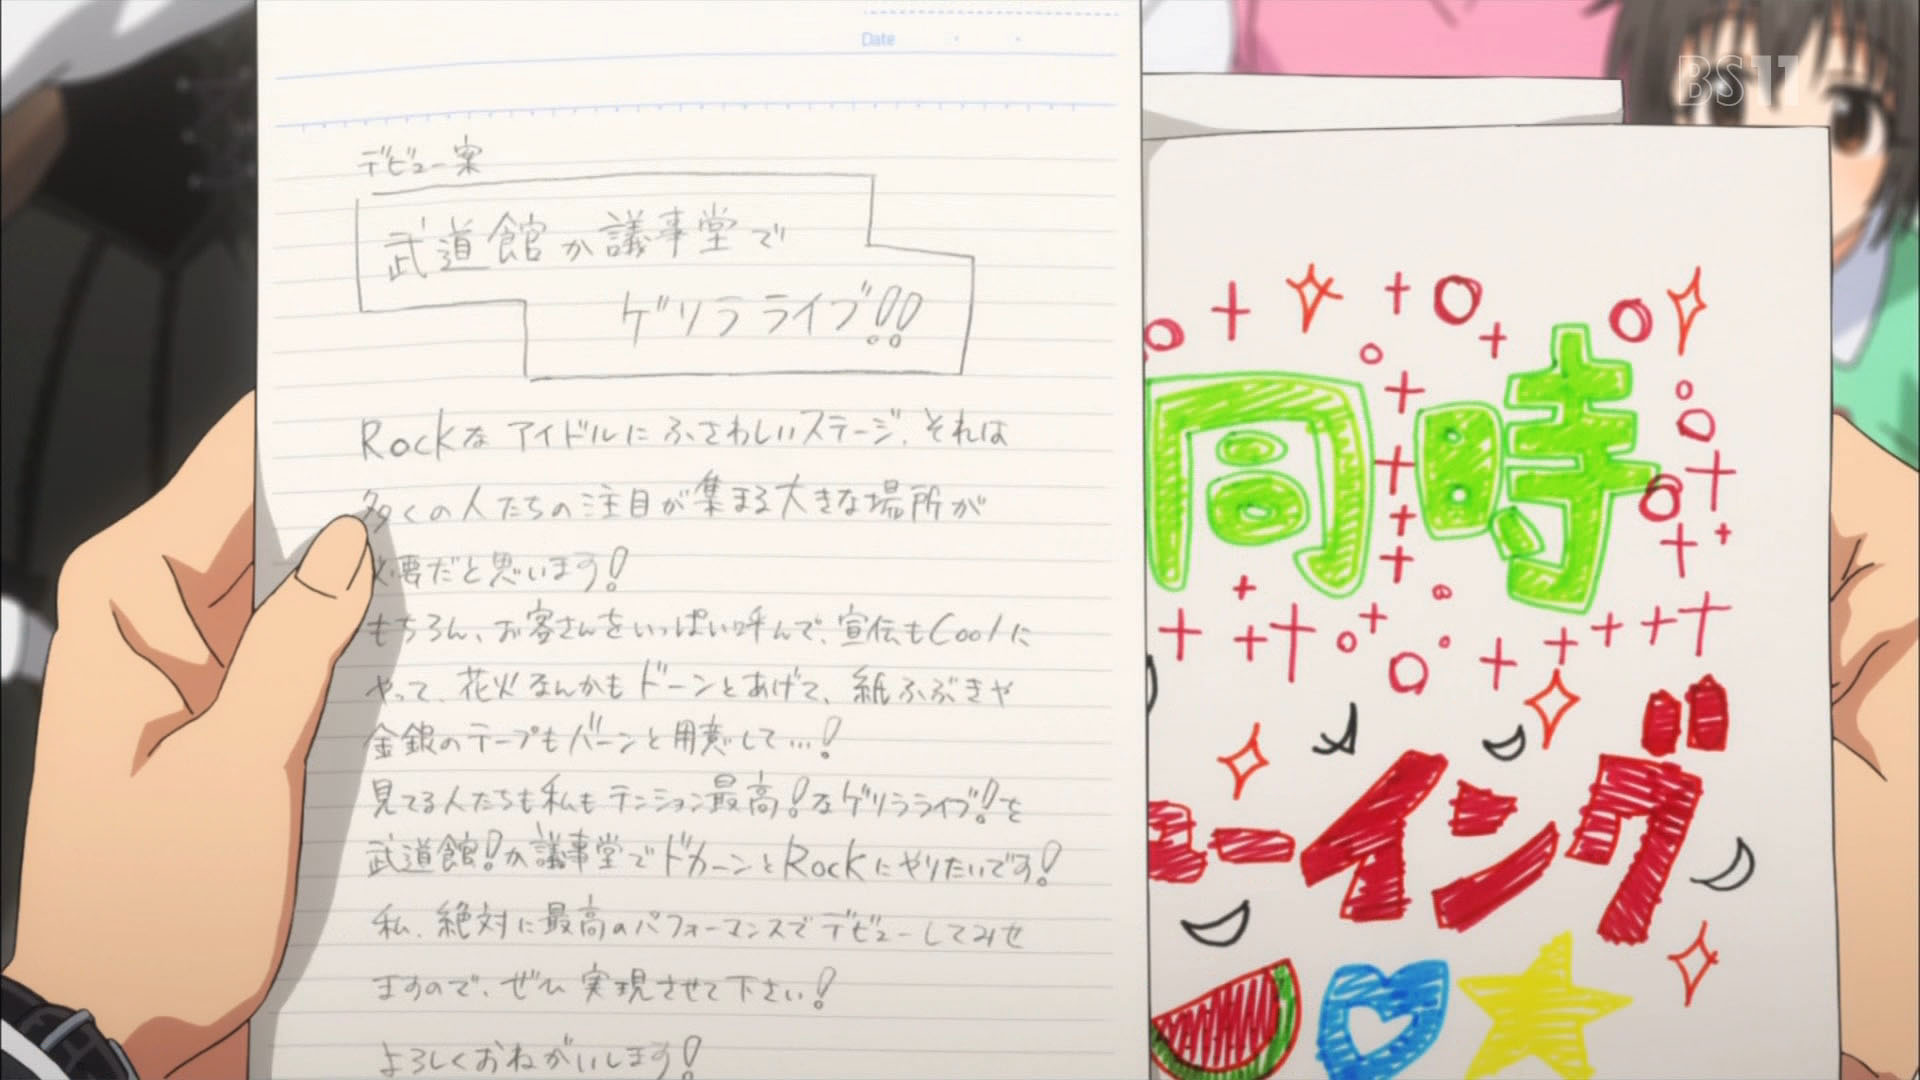 Date
BS11
デビュー案
武道館か議事堂で
ゲリラライブ!!
Rockなアイドルにふさわしいステージ、それは
多くの人たちの注目が集まる大きな場所が
必要だと思います!
もちろん、お客さんをいっぱい呼んで、宣伝もCoolに
やって、花火なんかもドーンとあげて、紙ふぶきや
金銀のテープもバーンと用意して…!
見てる人たちも私もテンション最高!なゲリラライブ!を
武道館!か議事堂でドカーンとRockにやりたいです!
私、絶対に最高のパフォーマンスでデビューしてみせ
ますので、ぜひ実現させて下さい!
よろしくおねがいします!
同時
ューイング